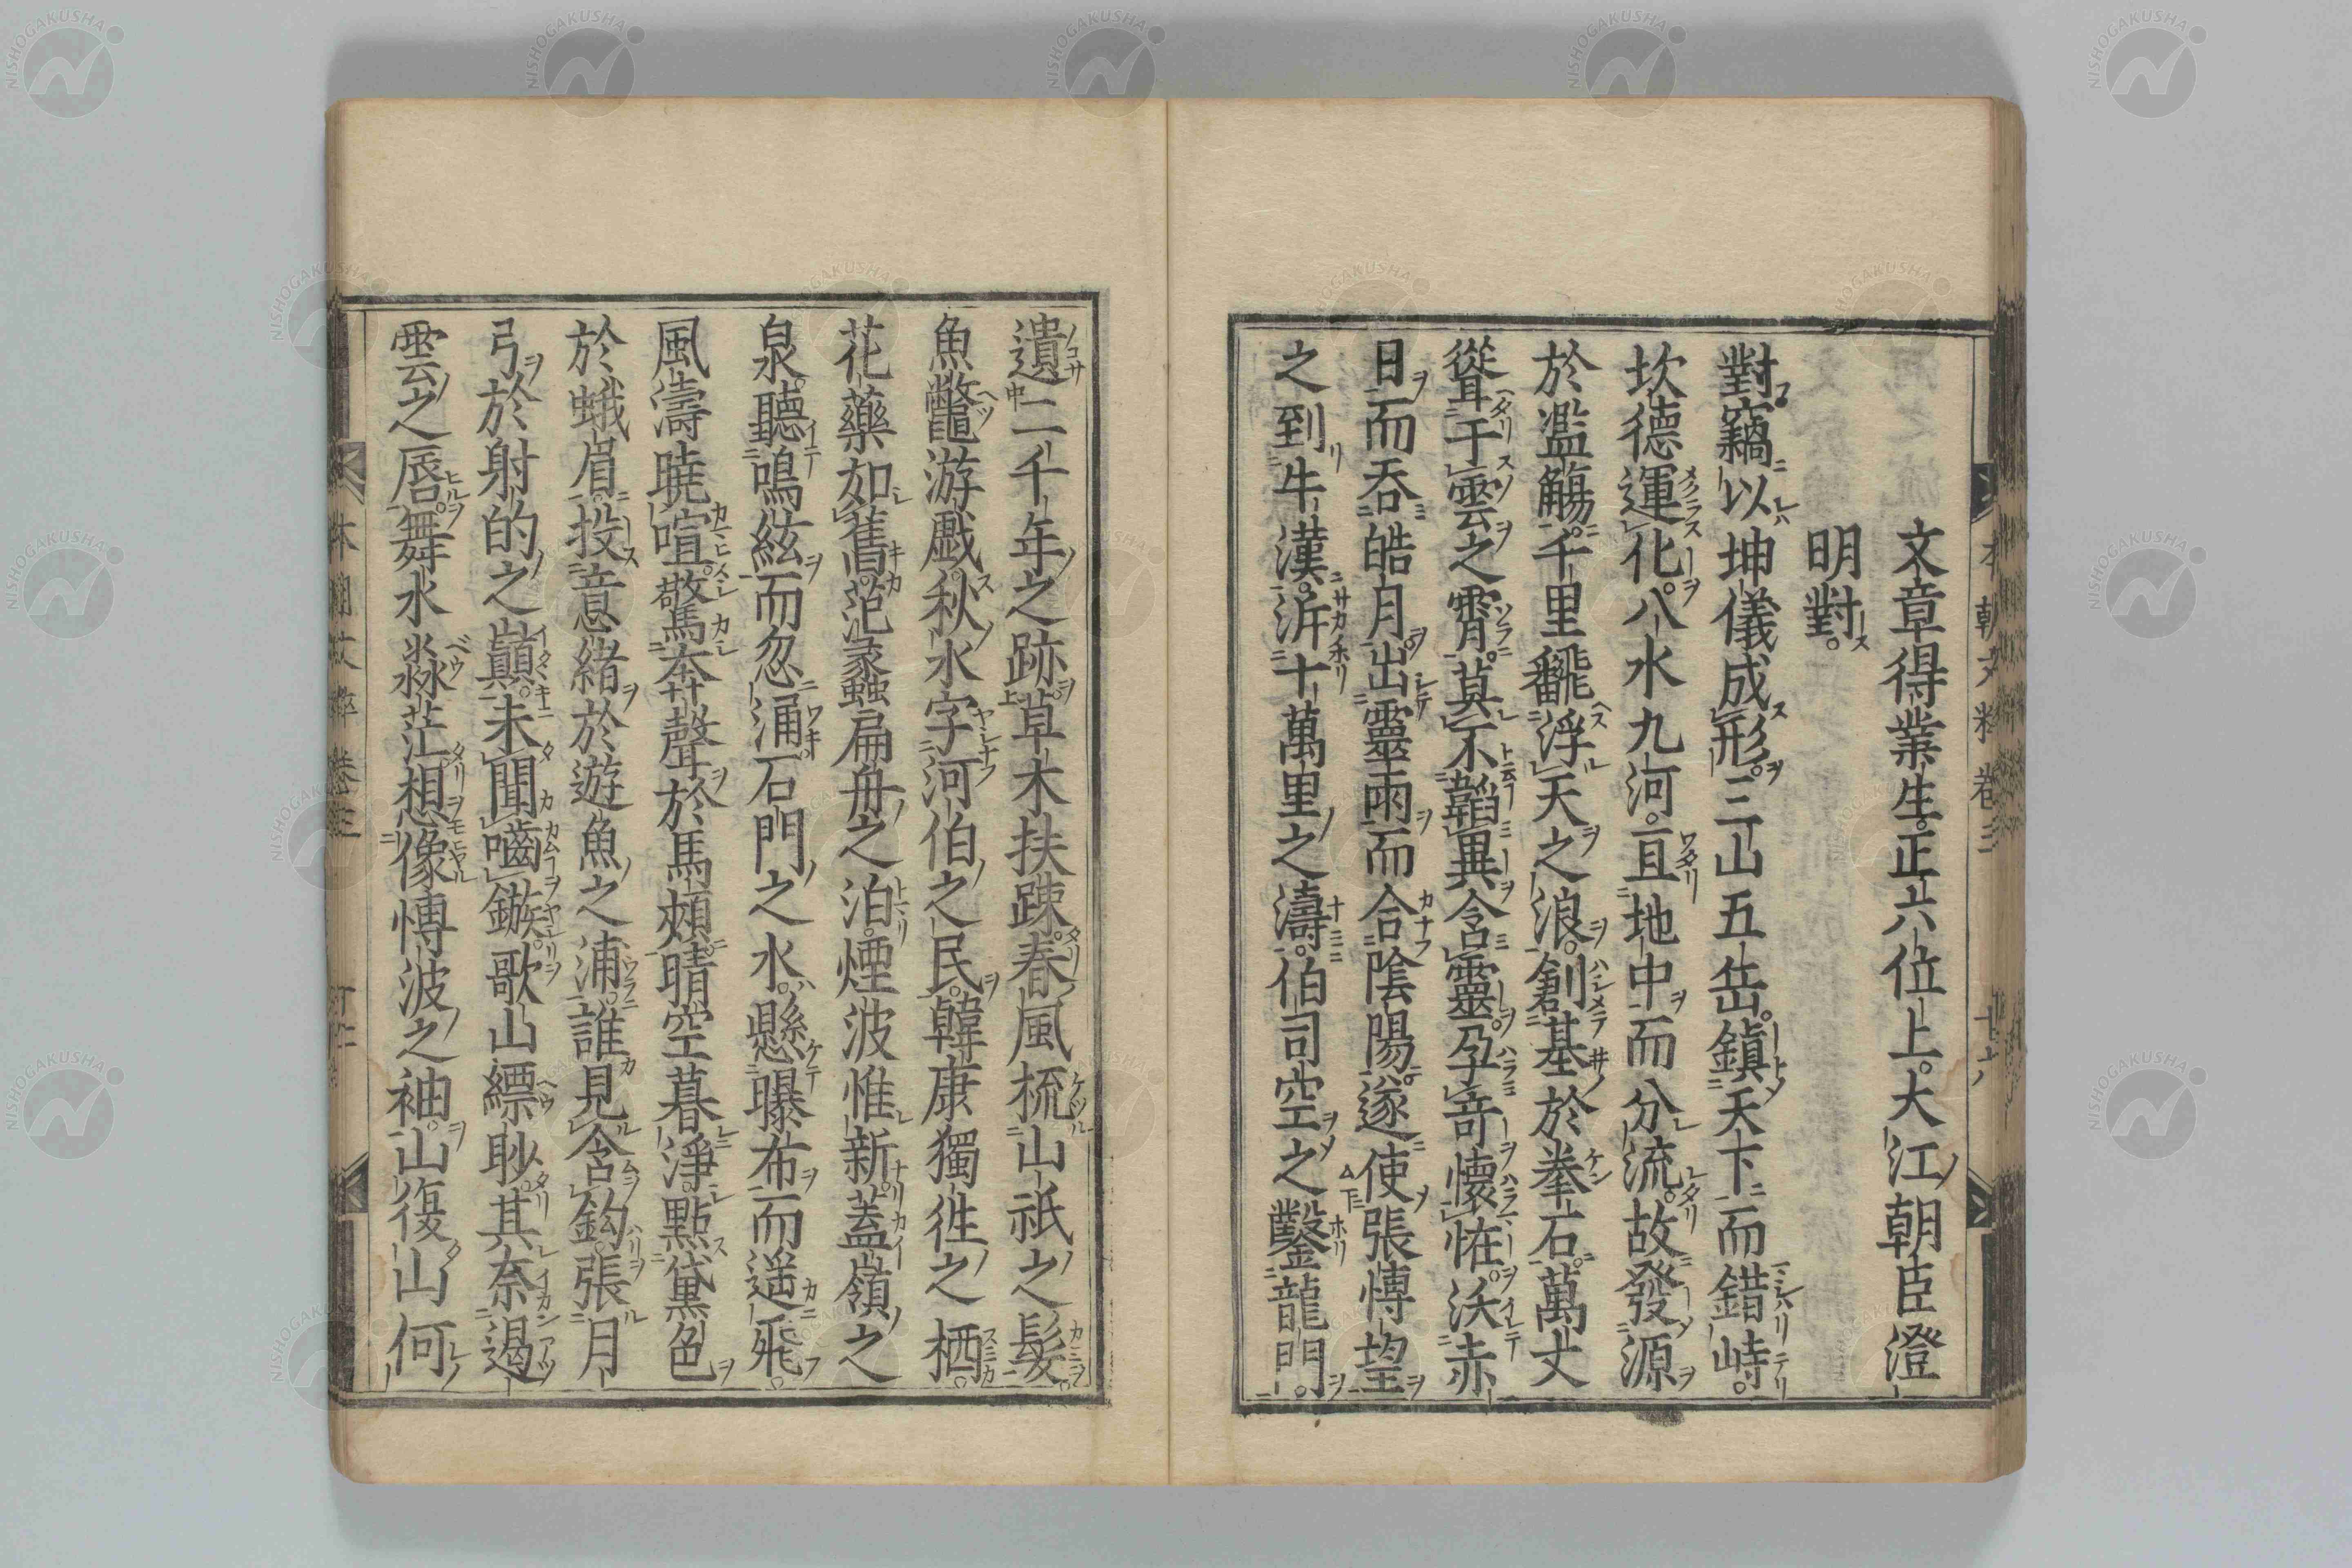 文章得業生。正六位上。大江朝臣澄
明對。
對。竊以坤儀成形。三山五岳。鎮天下而錯峙。
坎德運化。八水九河。亘地中而分流。故發源
於濫觴。千里飜浮天之浪。創基於拳石。萬丈
聳干雲之霄。莫不韜異含靈。孕奇懷恠。沃赤
日而吞皓月。出靈雨而合陰陽。遂使張博望
之到牛漢。泝十萬里之濤。伯司空之鑿龍門。
遺二千年之跡。草木扶踈。春風梳山祇之髮。
魚鼈游戲。秋水字河伯之民。韓康獨往之栖。
花藥如舊。范蠡扁舟之泊。煙波惟新。蓋嶺之
泉。聽鳴絃而忽涌。石門之水。懸曝布而遥飛。
風濤曉喧。驚奔聲於馬頰。晴空暮淨。點黛色
於蛾眉。投意緒於遊魚之浦。誰見含鈎。張月
弓於射的之巓。未聞嚙鏃。歌山縹眇。其奈遏
雲之唇。舞水淼茫。想像博波之袖。山復山何
本朝文粹 卷三 十六